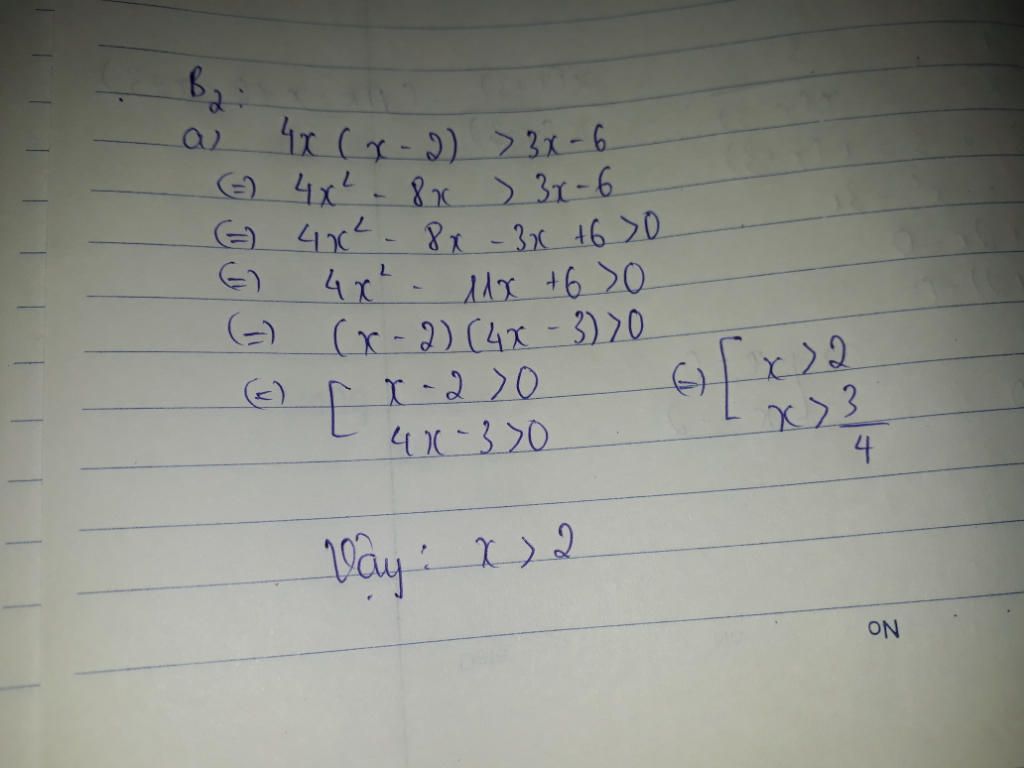 B2:
a) 4x (x - 2) > 3x - 6
(=) 4x² - 8x > 3x - 6
(=) 4x² - 8x - 3x + 6 > 0
(=) 4x² - 11x + 6 > 0
(=) (x - 2) (4x - 3) > 0
(=) [ x - 2 > 0 (=) [ x > 2
4x - 3 > 0 x > 3/4
Vậy : x > 2
ON